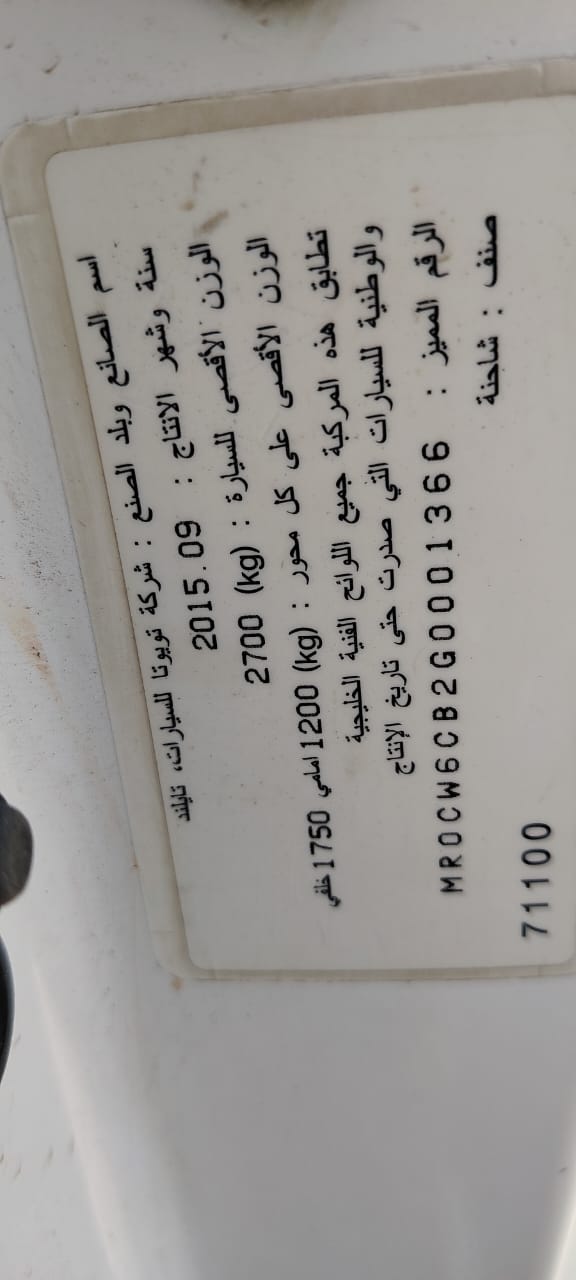 اسم الصانع وبلد الصنع : شركة تويوتا للسيارات، تايلند
سنة وشهر الانتاج : 2015.09
الوزن الأقصى للسيارة : (kg) 2700
الوزن الأقصى على كل محور : (kg) 1200 امامي 1750 خلفي
تطابق هذه المركبة جميع اللوائح الفنية الخليجية
والوطنية للسيارات التي صدرت حتى تاريخ الإنتاج
الرقم المميز : MR0CW6CB2G0001366
صنف : شاحنة
71100